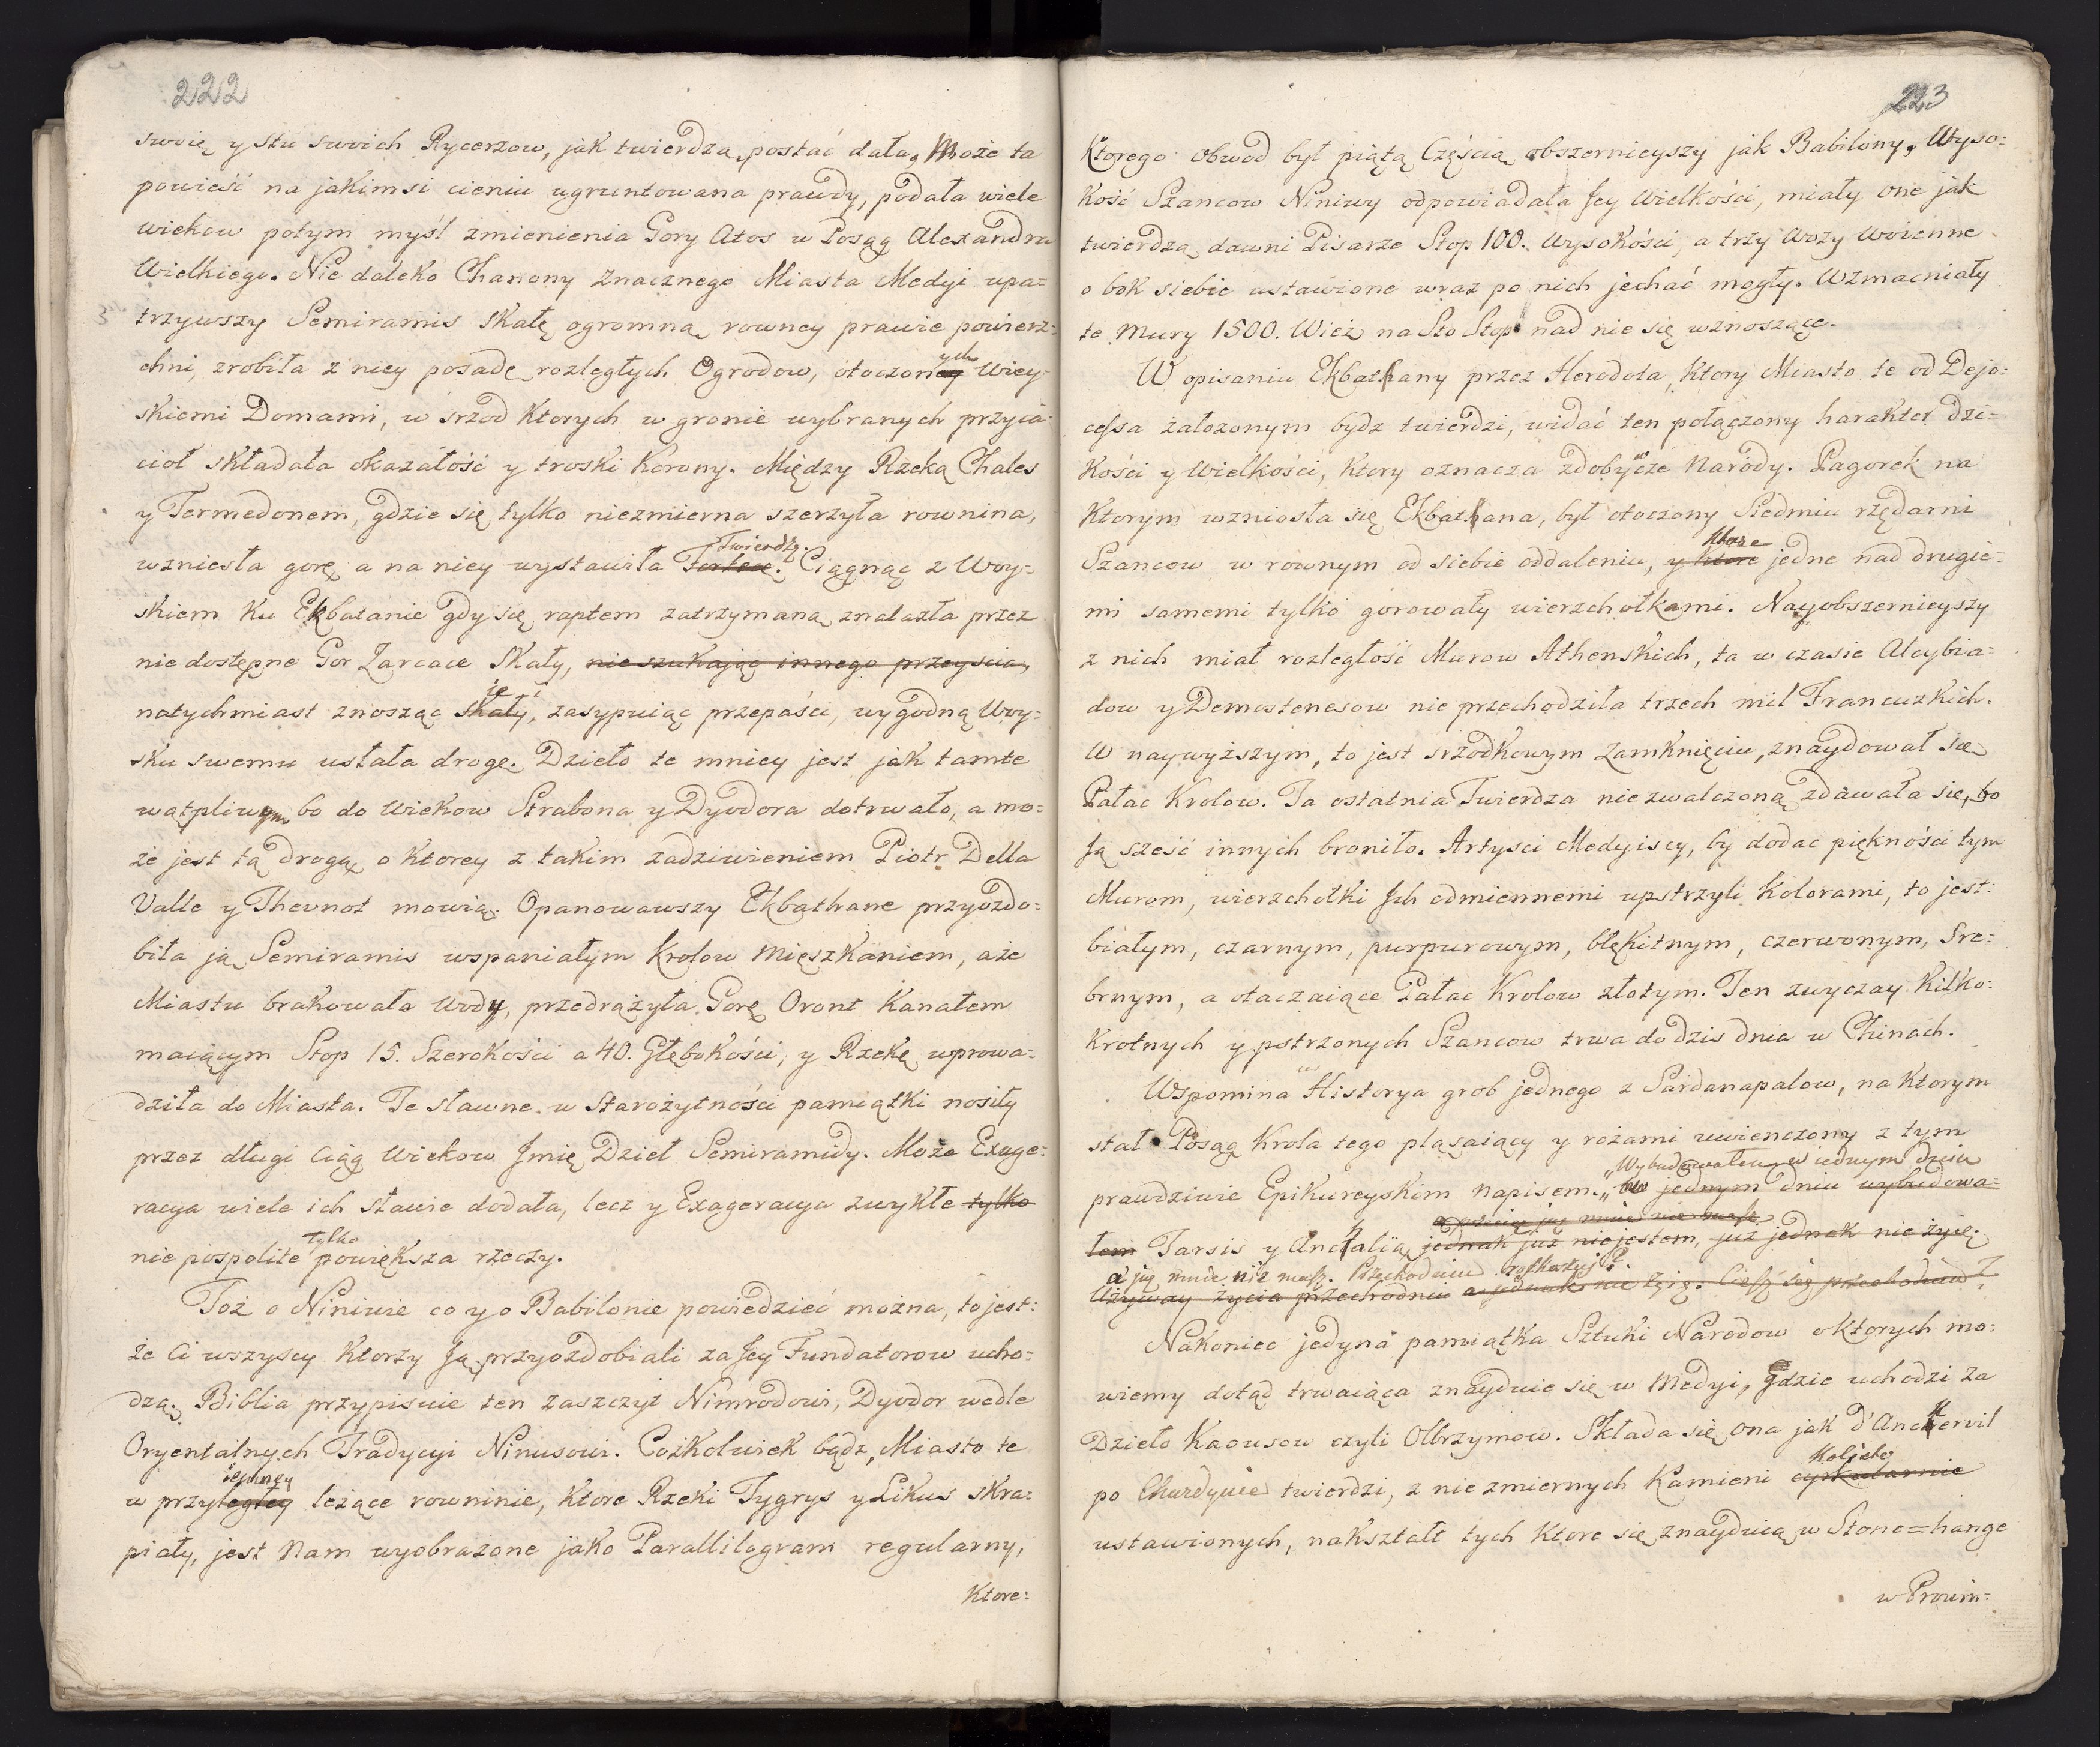 222
swoię y stu swoich Rycerzow, jak twierdzą, postać dała. Może ta
powieść na jakimsi cieniu ugruntowana prawdy, podała wiele
wiekow potym myśl zmienienia Gory Atos w Posąg Alexandra
Wielkiego. Nie daleko Chanony znacznego Miasta Medyi upa=
trzywszy Semiramis Skałę ogromną rowney prawie powierz=
chni, zrobiła z niey posadę rozległych Ogrodow, otoczonych Wiey=
skiemi Domami, w srzod ktorych w gronie wybranych przyia=
cioł składała okazałość y troski Korony. Między Rzeką Chales
y Termedonem, gdzie się tylko niezmierna szerzyła rownina,
Twierdzę.
wzniesła gorę, a na niey wystawiła Fortecę. Ciągnąc z Woy=
skiem ku Ekbatanie gdy się raptem zatrzymaną znalazła przez
nie dostępne Gor Zarcace Skały, nie szukając innego przeyscia,
je
natychmiast znosząc skały, zasypuiąc przepaści, wygodną Woy=
sku swemu usłała drogę. Dzieło te mniey jest jak tamte
wątpliwym bo do Wiekow Strabona y Dyodora dotrwało, a mo=
że jest tą drogą, o ktorey z takim zadziwieniem Piotr Della
Valle y Thevnot mowią. Opanowawszy Ekbathane przyozdo=
biła ją Semiramis wspaniałym Krolow Mięszkaniem, aże
Miastu brakowała Wody, przedrążyła Gorę Oront Kanałem
maiącym Stop 15. Szerokości a 40. Głębokości, y Rzekę wprowa=
dziła do Miasta. Te sławne w Starożytności pamiątki nosiły
przez długi ciąg Wiekow Jmię Dzieł Semiramidy. Może Exage=
racya wiele ich sławie dodała, lecz y Exageracya zwykłe tylko
tylko
nie pospolite powiększa rzeczy.
Toż o Niniwie co y o Babilonie powiedzieć można, to jest:
że Ci wszyscy ktorzy Ją przyozdobiali za Jey Fundatorow ucho=
dzą. Biblia przypisuie ten zaszczyt Nimrodowi, Dyodor wedle
Oryentalnych Tradycyi Ninusowi. Cożkolwiek bądz, Miasto te
w przyległey leżące rowninie, ktore Rzeki Tygrys y Likus skra=
piały, jest Nam wyobrażone jako Parallilogram regularny,
Ktore:
223
Ktorego obwod był piątą Częścią obszernieyszy jak Babilony. Wyso=
kość Szancow Niniwy odpowiadała Jey Wielkości, miały one jak
twierdzą dawni Pisarze Stop 100. Wysokości, a trzy Wozy Woienne
o bok siebie ustawione wraz po nich jechać mogły. Wzmacniały
te Mury 1500. Wież na Sto Stop nad nie się wznoszące.
W opisaniu Ekbathany przez Herodota, ktory Miasto te od Dejo=
cessa założonym bydz twierdzi, widać ten połączony harakter dzi=
kości y Wielkości, ktory oznacza zdobywcze Narody. Pagorek na
ktorym wzniosła się Ekbathana, był otoczony Siedmiu rzędami
ktore
Szancow w rownym od siebie oddaleniu, y ktore jedne nad drugie=
mi samemi tylko gorowały wierzchołkami. Nayobszernieyszy
z nich miał rozległość Murow Athenskich, ta w czasie Alcybia=
dow y Demostenesow nie przechodziła trzech mil Francuzkich.
W naywyższym, to jest srzodkowym zamknięciu, znaydował się
Pałac Krolow. Ta ostatnia Twierdza niezwalczoną zdawała się, bo
Ją sześć innych broniło. Artysci Medyiscy, by dodac piękności tym
Murom, wierzchołki Jch odmiennemi upstrzyli Kolorami, to jest:
białym, czarnym, purpurowym, błękitnym, czerwonym, Sre=
brnym, a otaczaiące Pałac Krolow złotym. Ten zwyczay kilko=
krotnych ypstrzonych Szancow trwa do dzis dnia w Chinach.
Wspomina Historya grob jednego z Sardanapalow, na ktorym
stał Posąg Krola tego pląsaiący y rożami uwienczony z tym
„Wybudowałem w iednym dniu
prawdziwie Epikureyskim napisem. „W jednym dniu wybudowa=
łem Tarsis y Anchalią jednak już niejestem, już jednak nie żyię;
a już mnie nie masz. Przechodniu
Używay życia przechodniu a jednak nie żyię. Ciesz się przechodniu
Nakoniec jedyna pamiątka Sztuki Narodow o ktorych mo=
wiemy dotąd trwaiąca znayduie się w Medyi, gdzie uchodzi za
Dzieło Kaousow czyli Olbrzymow. Składa się ona jak d'Ankervil
Kolisto
po Chardynie twierdzi, z niezmiernych Kamieni cyrkularnie
ustawionych, nakształt tych ktore się znayduią w Stone=hange
w Prowin=